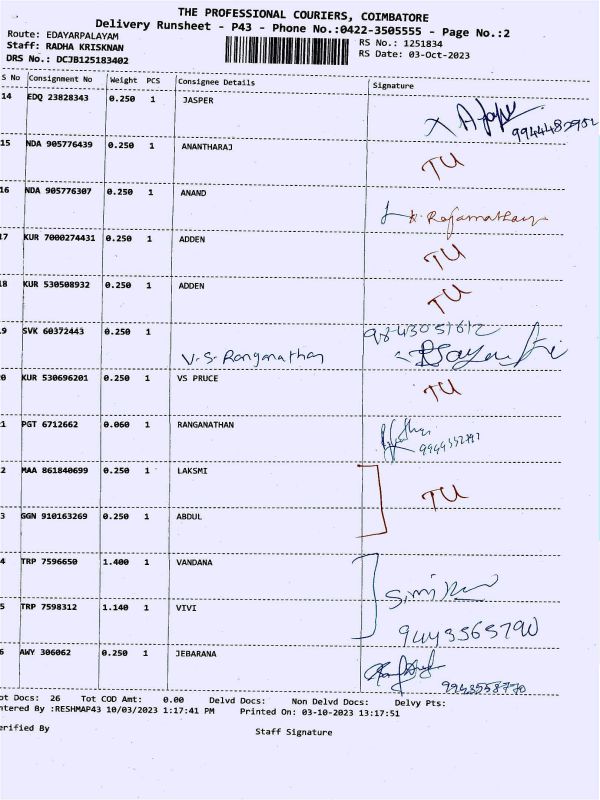 THE PROFESSIONAL COURIERS, COIMBATORE
Delivery Runsheet - P43 - Phone No.:0422-3505555 - Page No.:2
Route: EDAYARPALAYAM
Staff: RADHA KRISKNAN
RS No.: 1251834
DRS No.: DCJB125183402
RS Date: 03-Oct-2023
S No Consignment No Weight PCS Consignee Details Signature
14 EDQ 23828343 0.250 1 JASPER
15 NDA 905776439 0.250 1 ANANTHARAJ TU
16 NDA 905776307 0.250 1 ANAND
17 KUR 7000274431 0.250 1 ADDEN TU
18 KUR 530508932 0.250 1 ADDEN TU
9 SVK 60372443 0.250 1 9843051612
V.S. Ranganathan
0 KUR 530696201 0.250 1 VS PRUCE TU
1 PGT 6712662 0.060 1 RANGANATHAN
2 MAA 861840699 0.250 1 LAKSMI TU
3 GGN 910163269 0.250 1 ABDUL
4 TRP 7596650 1.400 1 VANDANA
5 TRP 7598312 1.140 1 VIVI
9443565790
6 AWY 306062 0.250 1 JEBARANA
9943558770
ot Docs: 26 Tot COD Amt: 0.00 Delvd Docs: Non Delvd Docs: Delvy Pts:
ntered By :RESHMAP43 10/03/2023 1:17:41 PM Printed On: 03-10-2023 13:17:51
erified By Staff Signature